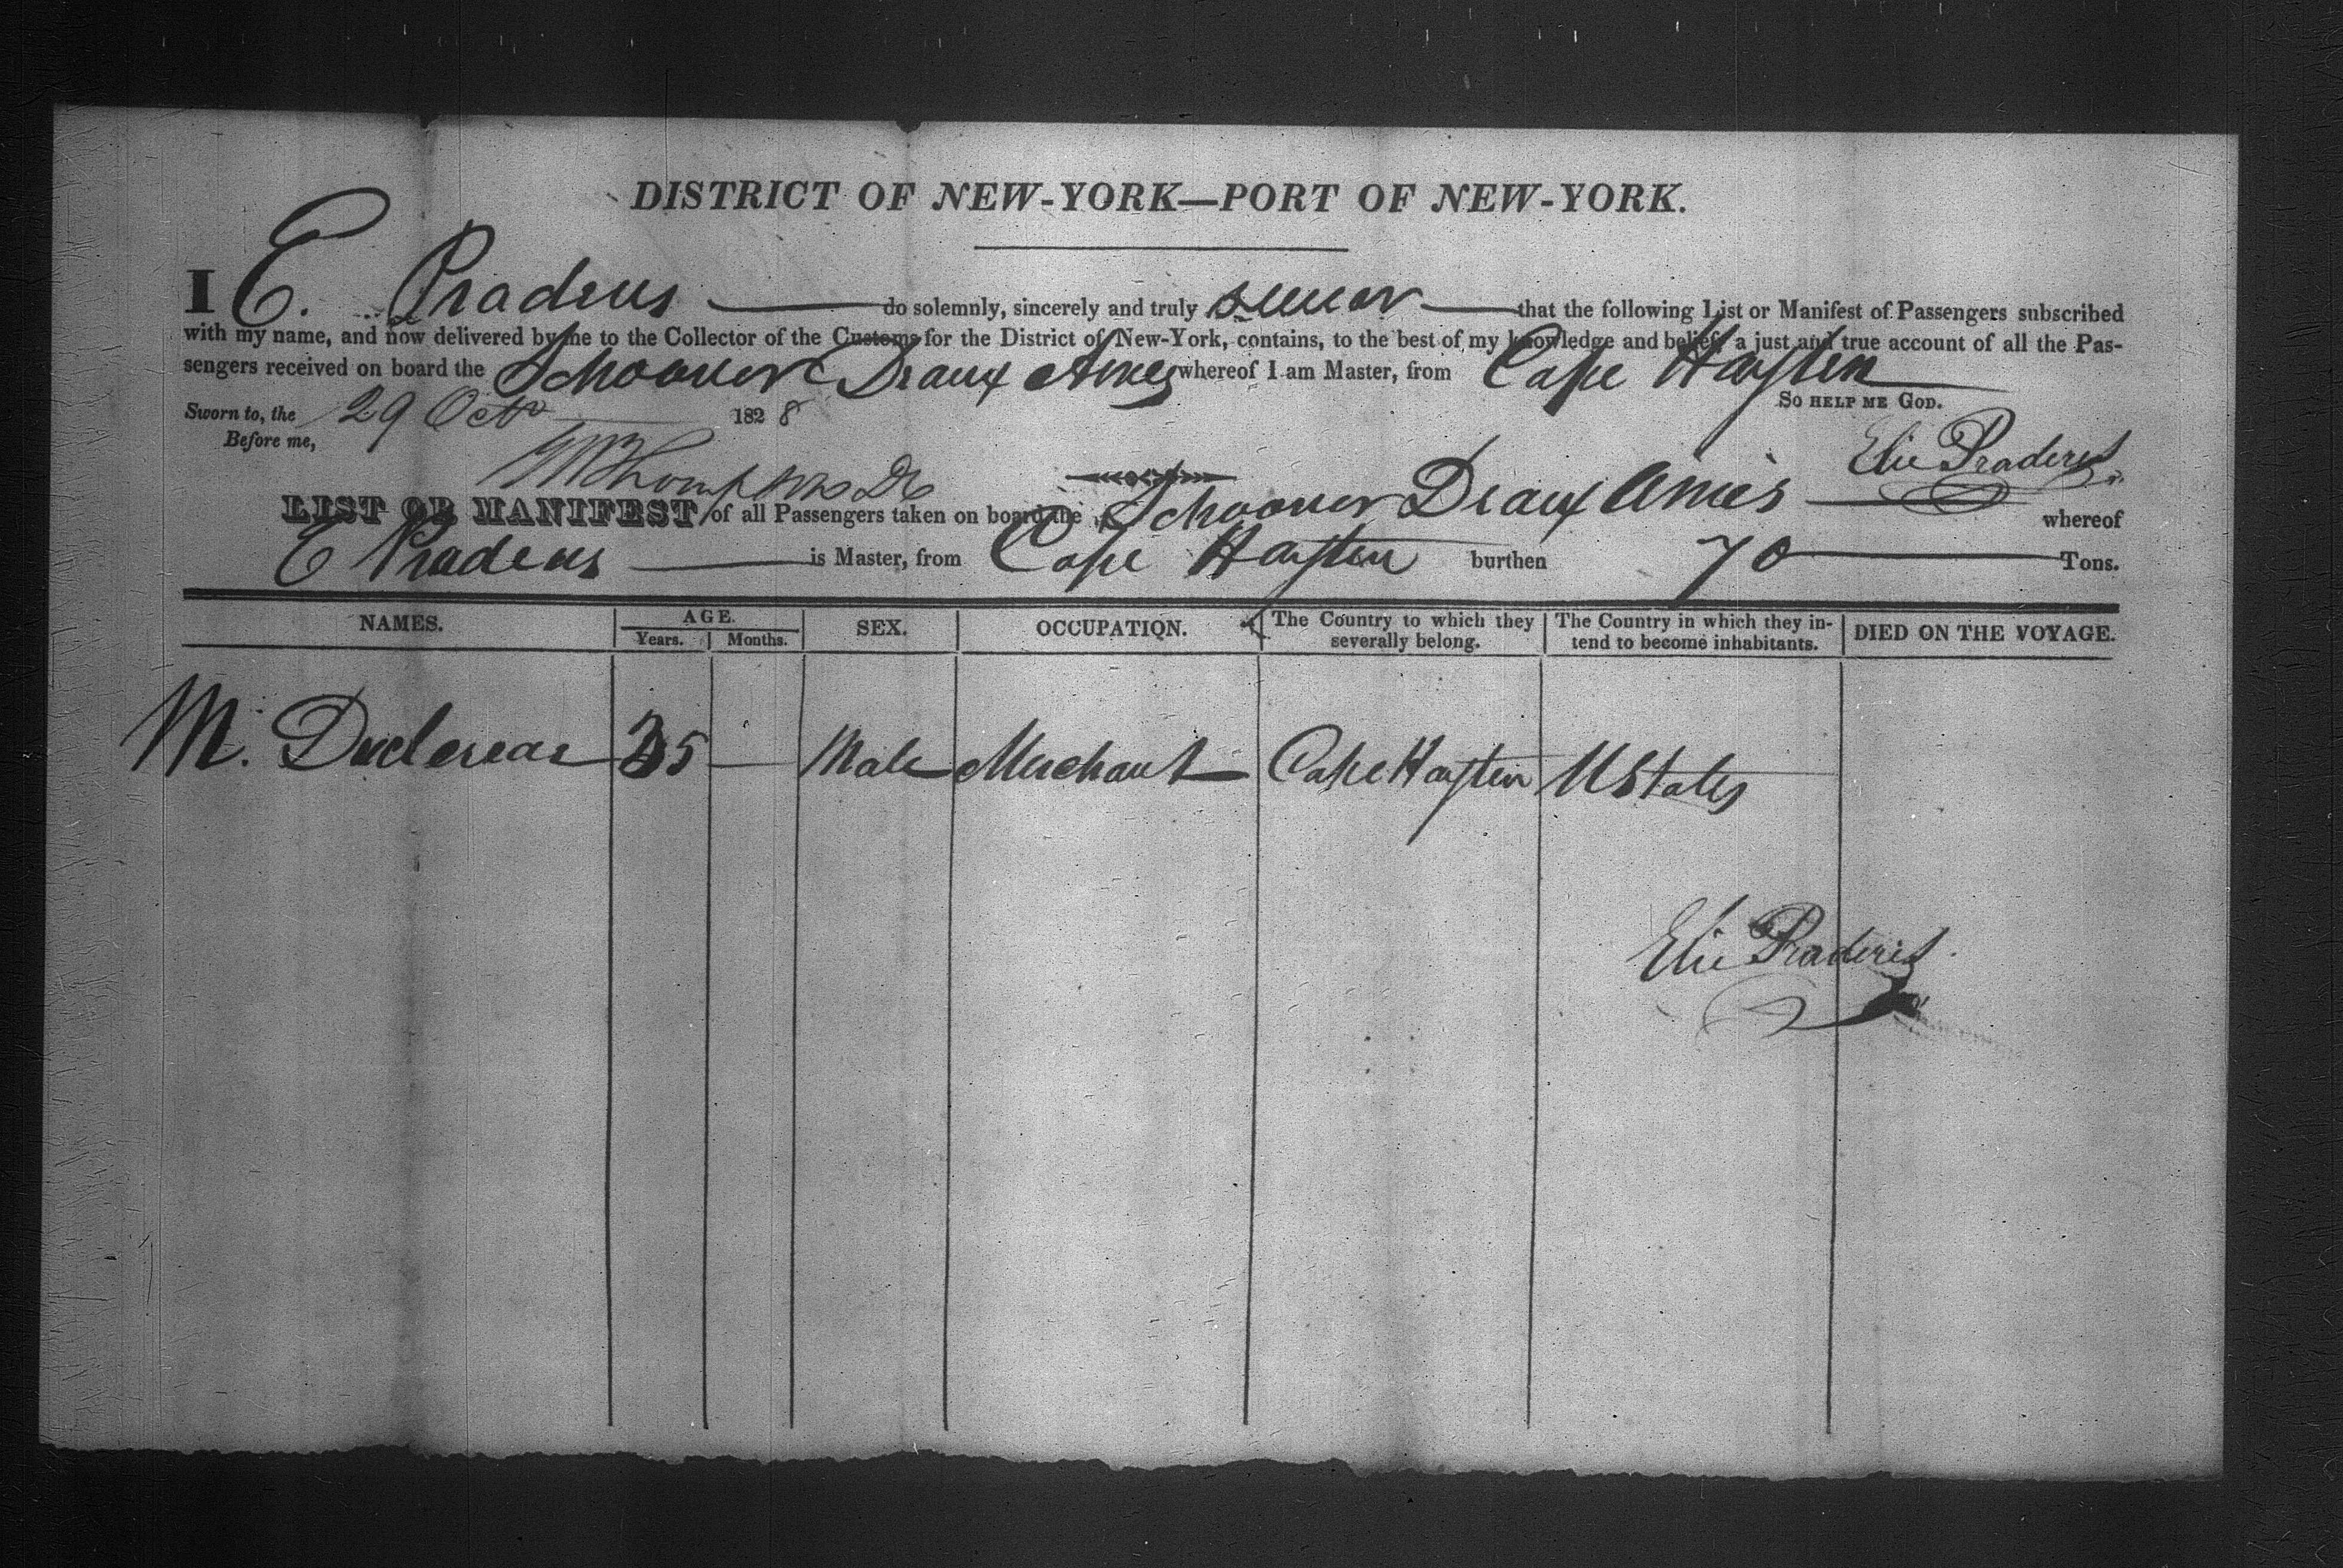 DISTRICT OF NEW-YORK—PORT OF NEW-YORK.
I E. Pradeus do solemnly, sincerely and truly swear that the following List or Manifest of Passengers subscribed
with my name, and now delivered by me to the Collector of the Customs for the District of New-York, contains, to the best of my knowledge and belief, a just and true account of all the Pas-
sengers received on board the Schooner Deaux Amies whereof I am Master, from Cape Haytien
So HELP ME GOD.
Sworn to, the 29 Octo 1828
Before me,
Elie Praderes
LIST OR MANIFEST of all Passengers taken on board the Schooner Deaux Amies whereof
E Pradeus is Master, from Cape Haytien burthen 70 Tons.
NAMES. AGE. SEX. OCCUPATION. The Country to which they severally belong. The Country in which they in-tend to become inhabitants. DIED ON THE VOYAGE.
Years. Months.
M. 35 Male Merchant Cape Haytien UStates
Elie Praderes